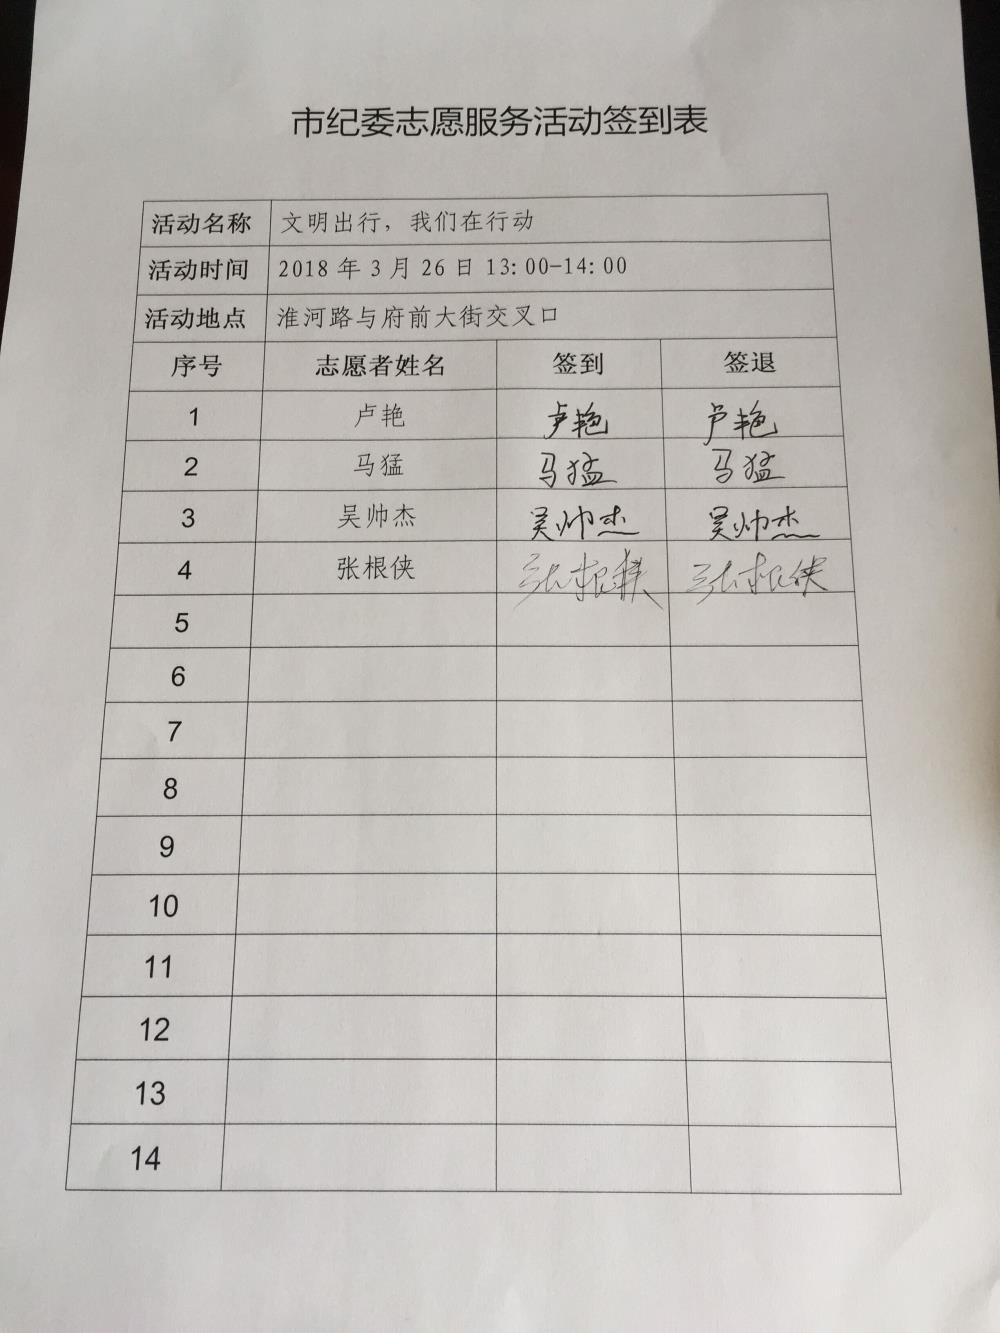 市纪委志愿服务活动签到表
活动名称 文明出行，我们在行动
活动时间 2018 年 3 月 26 日 13：00-14：00
活动地点 淮河路与府前大街交叉口
序号 志愿者姓名 签到 签退
1 卢艳 卢艳 卢艳
2 马猛 马猛 马猛
3 吴帅杰 吴帅杰 吴帅杰
4 张根侠 张根侠 张根侠
5
6
7
8
9
10
11
12
13
14